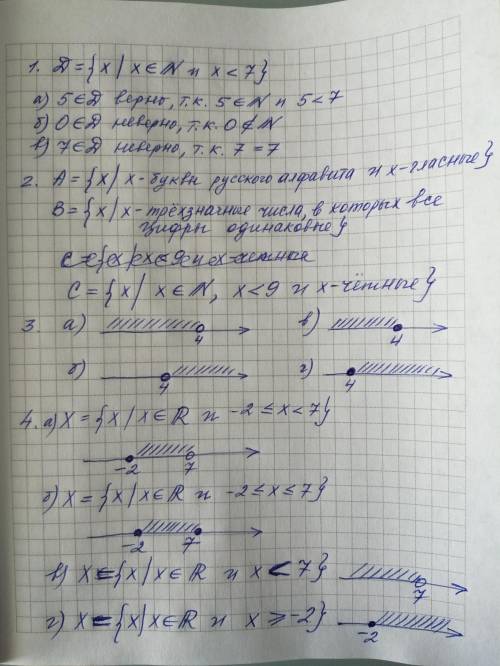 1. D = {x | x ∈ N и x < 7}
а) 5 ∈ D верно, т.к. 5 ∈ N и 5 < 7
б) 0 ∈ D неверно, т.к. 0 ∉ N
в) 7 ∈ D неверно, т.к. 7 = 7
2. A = {x | x - буквы русского алфавита и x - гласные}
B = {x | x - трёхзначные числа, в которых все
цифры одинаковые}
C = {x | x ∈ N, x < 9 и x - чётные}
3. а) 4 в) 4
б) 4 г) 4
4. а) X = {x | x ∈ R и -2 ≤ x < 7}
-2 7
б) X = {x | x ∈ R и -2 ≤ x ≤ 7}
-2 7
в) X = {x | x ∈ R и x < 7} 7
г) X = {x | x ∈ R и x ≥ -2} -2